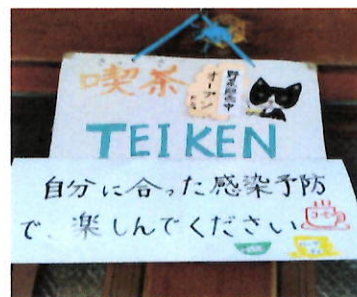 喫茶
オープン
TEIKEN
自分に合った感染予防
で、楽しんでください